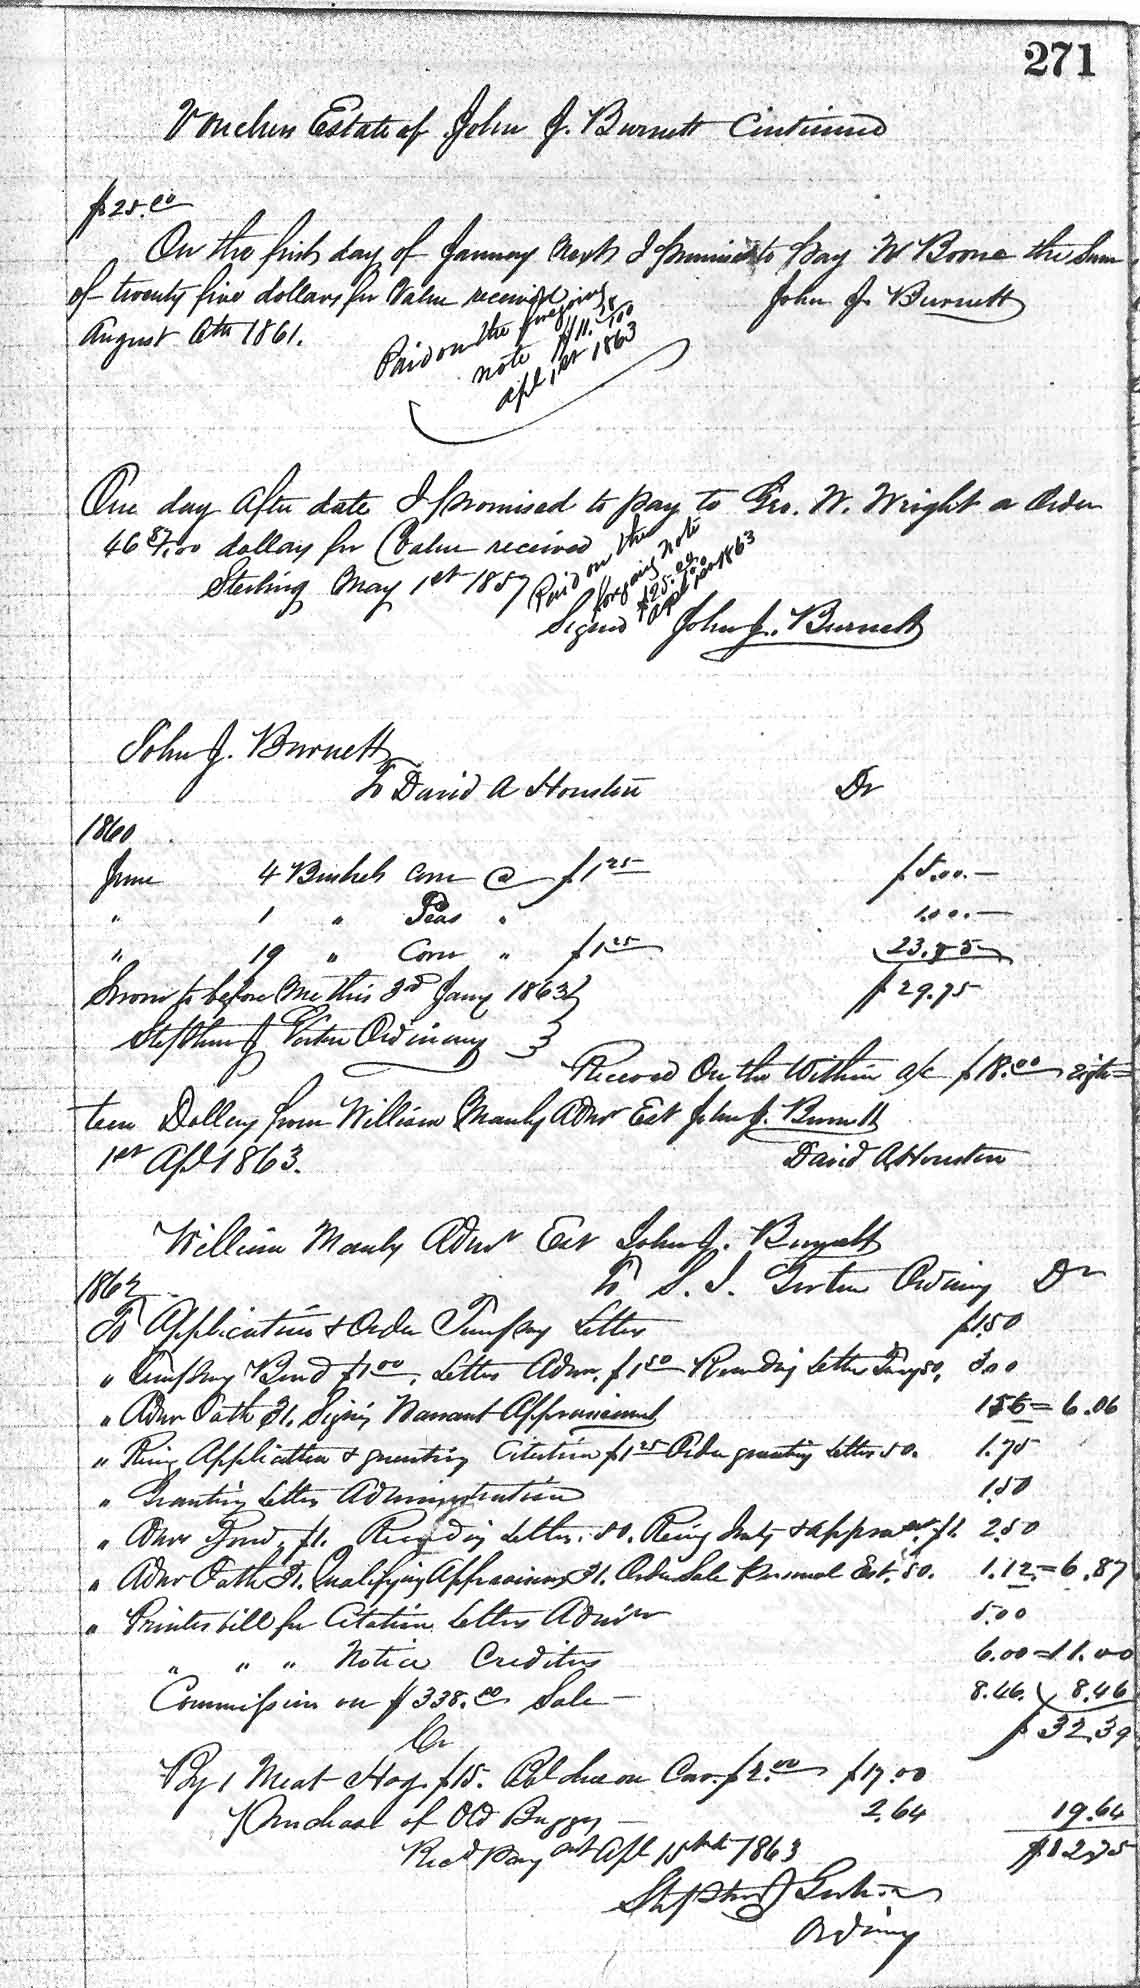 271
Vouchers Estate of John J. Burnett Continued
$25.00
On the first day of January Next I promise to pay W Boone the Sum
of twenty five dollars for Value received
John J. Burnett
August 6th 1861.
Paid on the foregoing
note $11.
Apl 1st 1863
One day after date I promised to pay to Geo. W. Wright or Order
46 dollars for Value received
Sterling May 1st 1857
Paid on the
forgoing Note
$25.00
Apl 1863
Signed John J. Burnett
John J. Burnett
To David A Houston Dr
1860
June 4 Bushels Corn @ $1 25 $5.00.
" 1 " Peas " 1.00.
" 19 " Corn " $1 25 23.75
Sworn to before Me this 3rd Jany 1863 $29.75
Stephen J Ordinary
Received On the Within a/c $18.00 eigh=
teen Dollars from William Manly Admr Est John J. Burnett
1st Apl 1863.
David A Houston
William Manly Admr Est John J. Burnett
1862 To S. J. Ordinary Dr
To Application & Order Tempory Letters $1.50
" Tempory Bond $1 00, Letters Admr. $1 50 Recording Letters Tempy 50, 3.00
" Admr Oath Signing Warrant Appraisment 1.56 = 6.06
" Application & granting Citation $1 25 Order granting Letters 50. 1.75
" Granting Letters Administration 1.50
" Admr Bond, $1. Recording Letters .50. & $1. 2.50
" Admr Oath Qualifying Appraisers Order Sale Personal Est. 50. 1.12 = 6.87
" Printers bill for Citation Letters Admr 5.00
" " " Notice Creditors 6.00 = 11.00
Commission on $338.00 Sale 8.46. 8.46
$32.39
Cr
By 1 Meat Hog $15. $2.00 $17.00
Purchase of Old Buggy 2.64 19.64
Recd Payment Apl 15th 1863 $12.75
Stephen J
Ordinary